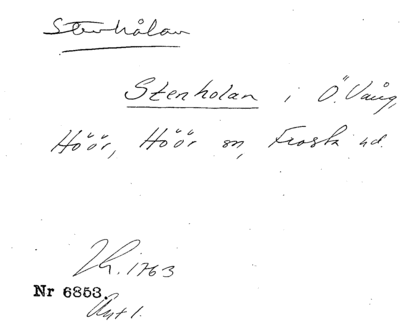 Stenhålan
Stenholan i Ö. Vång,
Höör, Höör sn, Frosta hd.
Zh. 1763
Nr 6853.
Avt 1.